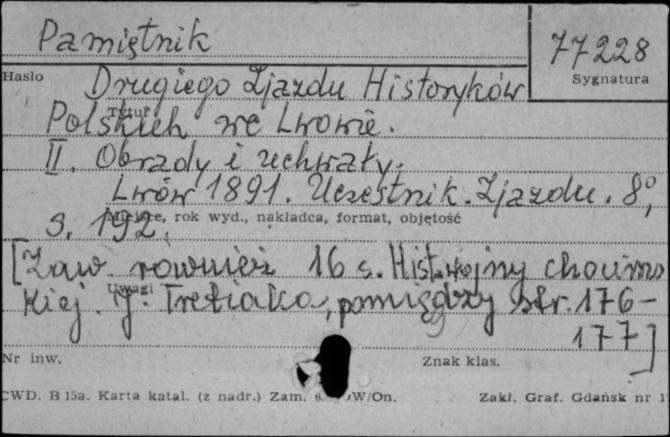 Pamiętnik
77228
Hasło
Sygnatura
Drugiego Zjazdu Historyków
Tytuł
Polskich we Lwowie.
II. Obrady i uchwały.
Lwów 1891. Uczestnik. Zjazdu. 8°,
Miejsce, rok wyd., nakładca, format, objętość
s. 192.
[Zaw. również 16 s. Hist. wojny chocims
Uwagi
kiej. J. Tretiaka, pomiędzy str. 176-
177]
Nr inw.
Znak klas.
CWD. B 15a. Karta katal. (z nadr.) Zam. W/On.
Zakł. Graf. Gdańsk nr 1